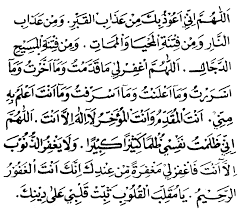 اَللّٰهُمَّ اِنِّيْ اَعُوْذُبِكَ مِنْ عَذَابِ الْقَبْرِ. وَمِنْ عَذَابِ
النَّارِ وَمِنْ فِتْنَةِ الْمَحْيَا وَالْمَمَاتِ. وَمِنْ فِتْنَةِ الْمَسِيْحِ
الدَّجَّالِ. اَللّٰهُمَّ اغْفِرْلِيْ مَاقَدَّمْتُ وَمَا اَخَّرْتُ وَمَا
اَسْرَرْتُ وَمَا اَعْلَنْتُ وَمَا اَسْرَفْتُ وَمَا اَنْتَ اَعْلَمُ بِهِ
مِنِّيْ. اَنْتَ الْمُقَدِّمُ وَاَنْتَ الْمُؤَخِّرُ لَا اِلٰهَ اِلَّا اَنْتَ. اَللّٰهُمَّ
اِنِّيْ ظَلَمْتُ نَفْسِيْ ظُلْمًا كَثِيْرًا كَبِيْرًا. وَلَا يَغْفِرُ الذُّنُوْبَ
اِلَّا اَنْتَ فَاغْفِرْلِيْ مَغْفِرَةً مِنْ عِنْدِكَ اِنَّكَ اَنْتَ الْغَفُوْرُ
الرَّحِيْمُ. يَا مُقَلِّبَ الْقُلُوْبِ ثَبِّتْ قَلْبِيْ عَلَى دِيْنِكَ.